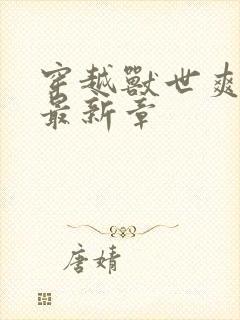 穿越獸世爽
最新章
唐婧